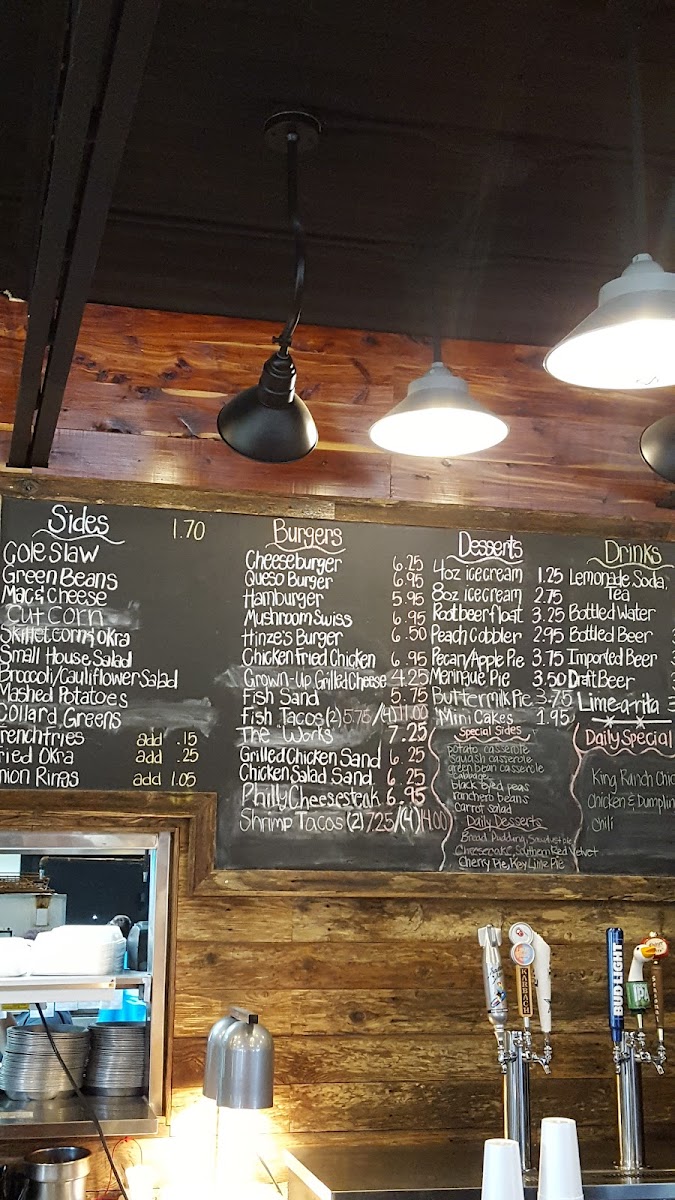 Sides 1.70
Cole Slaw
Green Beans
Mac & Cheese
Cut Corn
Skillet corn & okra
Small House Salad
Broccoli/Cauliflower Salad
Mashed Potatoes
Collard Greens
rench fries add .15
ried Okra add .25
nion Rings add 1.05
Burgers
Cheeseburger 6.25
Queso Burger 6.95
Hamburger 5.95
Mushroom Swiss 6.95
Hinze's Burger 6.50
Chicken Fried Chicken 6.95
Grown-Up Grilled Cheese 4.25
Fish Sand 5.75
Fish Tacos (2) 5.75 /(4) 11.00
The Works 7.25
Grilled Chicken Sand 6.25
Chicken Salad Sand. 6.25
Philly Cheesesteak 6.95
Shrimp Tacos (2) 7.25/(4) 14.00
Desserts
4oz ice cream 1.25
8oz ice cream 2.75
Rootbeer float 3.25
Peach Cobbler 2.95
Pecan/Apple Pie 3.75
Meringue Pie 3.50
Buttermilk Pie 3.75
Mini Cakes 1.95
Special Sides
potato casserole
squash casserole
green bean casserole
cabbage
black eyed peas
ranchero beans
carrot salad
Daily Desserts
Bread Pudding, Sawdust pie
Cheesecake, Southern Red Velvet
Cherry Pie, Key Lime Pie
Drinks
Lemonade Soda,
Tea
Bottled Water
Bottled Beer 3
Imported Beer 3
Draft Beer
Lime-a-rita 3
Daily Special
King Ranch Chic
Chicken & Dumplin
Chili
KARBACH
BUD LIGHT
IPA